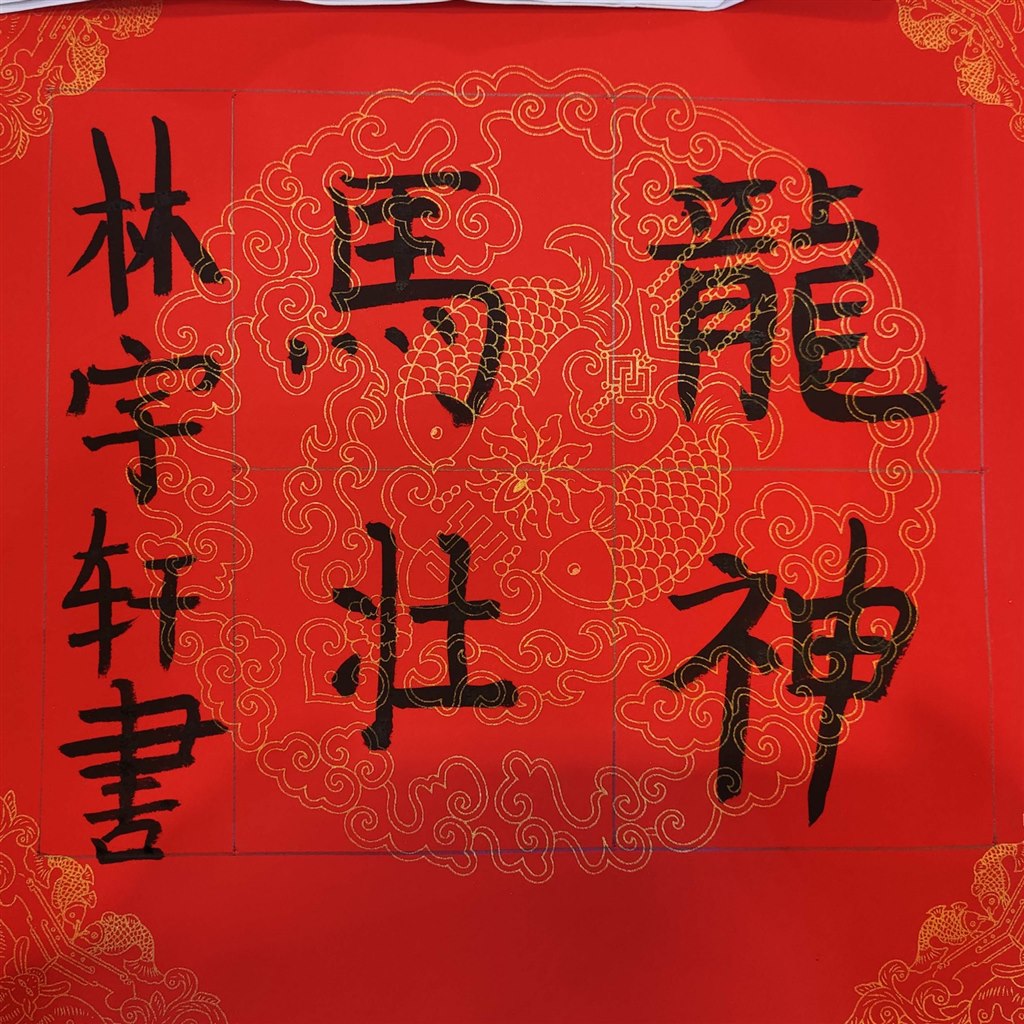 龍神
馬壯
林宇轩書